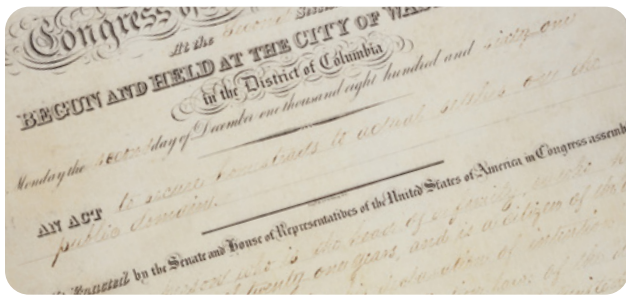 Congress of
At the second Sess
BEGUN AND HELD AT THE CITY OF WAS
in the District of Columbia
Monday the second day of December one thousand eight hundred and sixty one
AN ACT to secure homesteads to actual settlers on the
public domain.
Enacted by the Senate and House of Representatives of the United States of America in Congress assemb
person who is the head of a family,
twenty one years, and is a citizen of the
declaration of intention